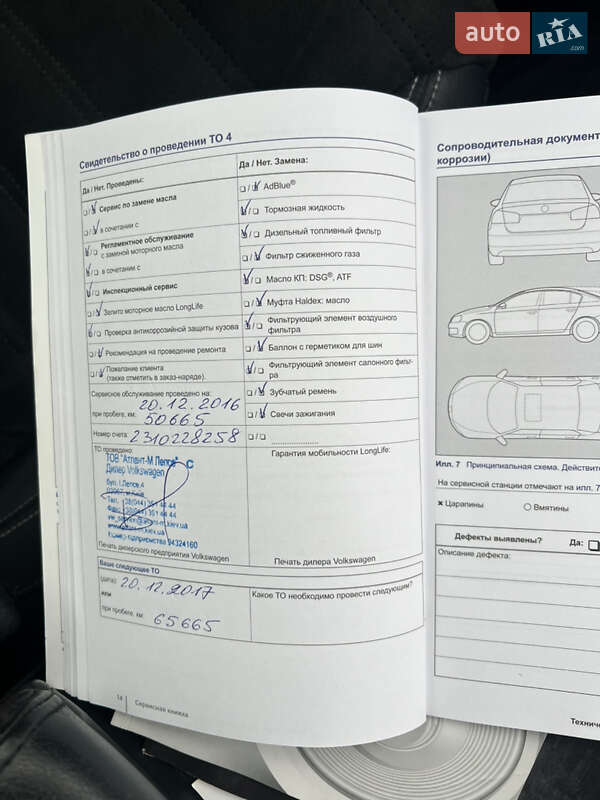 auto RIA .com
Свидетельство о проведении ТО 4
Да / Нет. Проведены:
Сервис по замене масла
в сочетании с
Регламентное обслуживание
с заменой моторного масла
в сочетании с
Инспекционный сервис
Залито моторное масло LongLife
Проверка антикоррозийной защиты кузова
Рекомендация на проведение ремонта
Пожелание клиента
(также отметить в заказ-наряде).
Да / Нет. Замена:
AdBlue®
Тормозная жидкость
Дизельный топливный фильтр
Фильтр сжиженного газа
Масло КП: DSG®, ATF
Муфта Haldex: масло
Фильтрующий элемент воздушного
фильтра
Баллон с герметиком для шин
Фильтрующий элемент салонного фильт-
ра
Зубчатый ремень
Свечи зажигания
Сервисное обслуживание проведено на:
20.12.2016
при пробеге, км: 50665
Номер счета: 2310228258
ТО проведено:
ТОВ "Атлант-М Лепсе"
Дилер Volkswagen
бул. І.Лепсе,4
Печать дилерского предприятия Volkswagen
Гарантия мобильности LongLife:
Печать дилера Volkswagen
Ваше следующее ТО
(дата): 20.12.2017
или
при пробеге, км: 65665
Какое ТО необходимо провести следующим?
14 Сервисная книжка
Сопроводительная документ
коррозии)
Илл. 7 Принципиальная схема. Действите
На сервисной станции отмечают на илл. 7
× Царапины ○ Вмятины
Дефекты выявлены? Да:
Описание дефекта:
Техниче